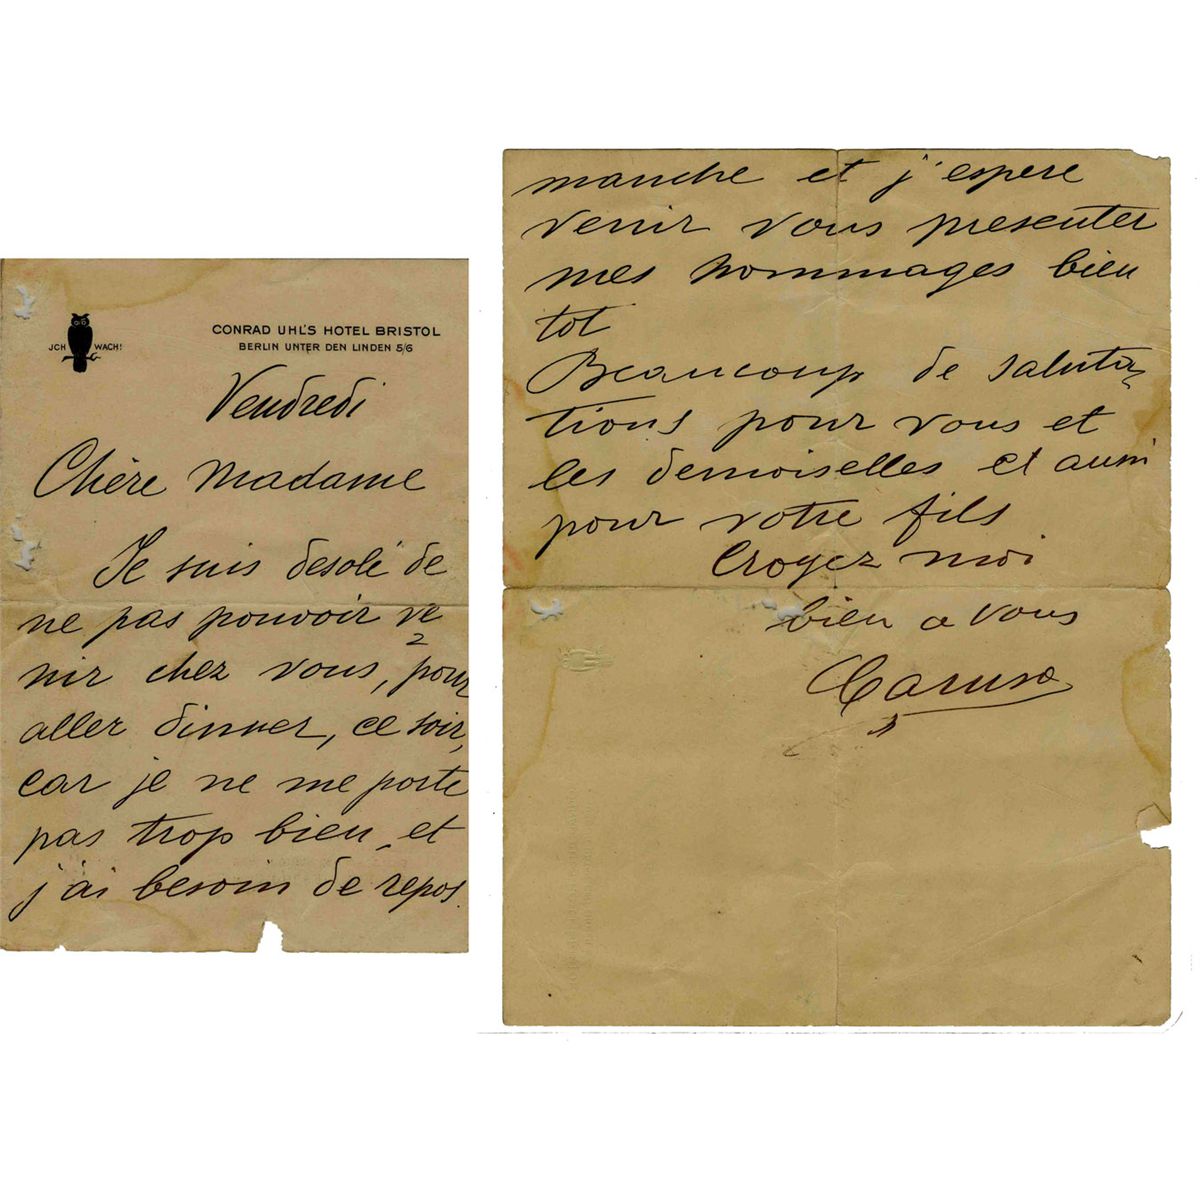 JCH WACH!
CONRAD UHL'S HOTEL BRISTOL
BERLIN UNTER DEN LINDEN 5/6
Vendredi
Chère Madame
Je suis desolé de
ne pas pouvoir ve
nir chez vous, pour
aller dinner, ce soir,
car je ne me porte
pas trop bien, et
j'ai besoin de repos.
manche et j'espere
venir vous presenter
mes hommages bien
tot
Beaucoup de saluta-
tions pour vous et
les demoiselles et aussi
pour votre fils
Croyez moi
bien a vous
Caruso